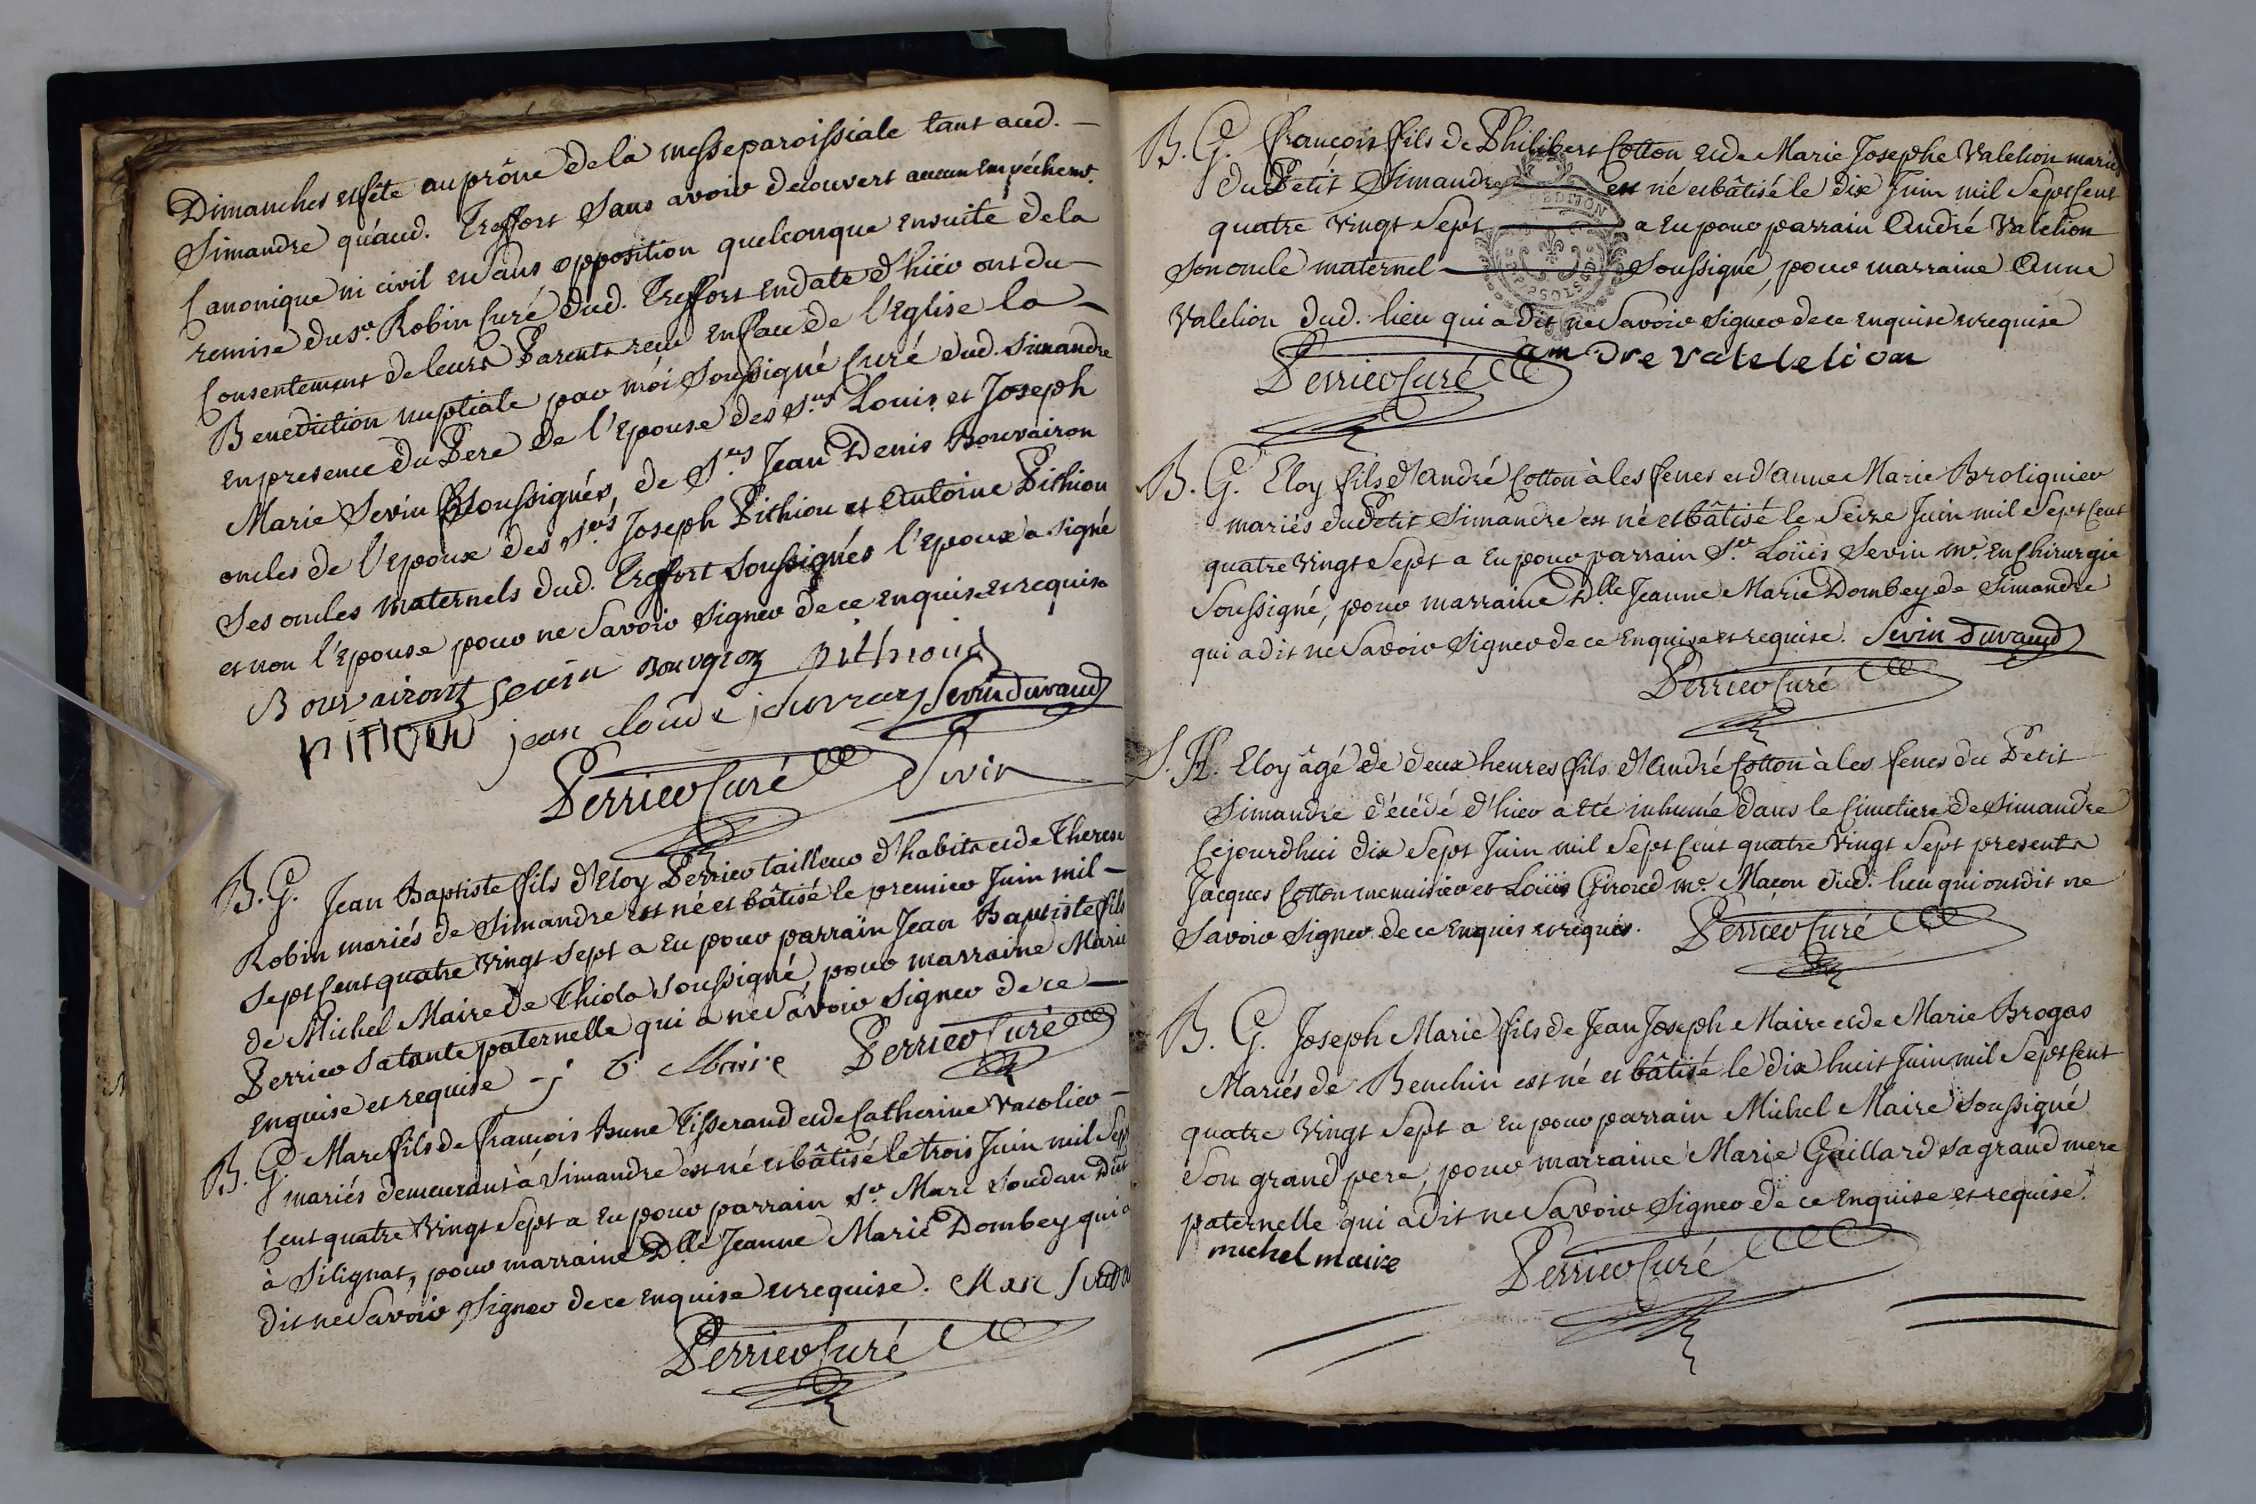 Dimanches et fête au prône de la messe paroissiale tant aud. —
Simandre qu'aud. Treffort Sans avoir decouvert aucun Empêchemt.
Canonique ni civil en Sans opposition quelconque ensuite de la
remise du Sr. Robin Curé dud. Treffort en date d'hiër ont du —
Consentement de leurs Parents reçu en face de l'Eglise la —
Benediction nuptiale par môi Soussigné Curé dud. Simandre
en presence du Pere de l'Epouse des Srs Louis et Joseph
Marie Sevin Soussignés, de Srs Jean Denis Bouvairon
oncles de l'Epoux des Srs Joseph Pithiou et Antoine Pithion
Ses oncles maternels dud. Treffort Soussignés l'Epoux a signé
et non l'Epouse pour ne Savoir Signer de ce Enquise et requise
Bouvairont Sevin pithion
jean Sevin Duraud
Perrier Curé Sevin
B. G. Jean Baptiste fils d'Eloy Perrier tailleur d'habits et de Therese
Robin mariés de Simandre est né et bâtisé le premier Juin mil —
Sept Cent quatre Vingt Sept a Eu pour parrain Jean Baptiste fils
de Michel Maire de Thiole Soussigné, pour marraine Marie
Perrier Sa tante paternelle qui a ne Sâvoir Signer de ce —
Enquise et requise — j b Maire Perrier Curé
B. G. Marc fils de François Brune Tisserand et de Catherine
mariés demeurant à Simandre est né et bâtisé le trois Juin mil Sept
Cent quatre Vingt Sept a Eu pour parrain Sr. Marc Soudan
à Silignat, pour marraine Dlle Jeanne Marie Dombey qui a
dit ne Savoir Signer de ce Enquise et requise. Marc
Perrier Curé
B. G. François fils de Philibert Cotton et de Marie Josephe Valelion mariés
du Petit Simandre — est né et bâtisé le dix Juin mil Sept Cent
quatre Vingt Sept — a Eu pour parrain André Valelion
Son oncle maternel — Soussigné, pour marraine Anne
Valelion dud. lieu qui a dit ne Savoir Signer de ce Enquise et requise
Perrier Curé
B. G. Eloy fils d'André Cotton à les fenes et d'Anne Marie Broliquier
mariés du Petit Simandre est né et bâtisé le Seize Juin mil Sept Cent
quatre Vingt Sept a Eu pour parrain Sr. Loüis Sevin me. En Chirurgie
Soussigné, pour marraine Dlle Jeanne Marie Dombey de Simandre
qui a dit ne Savoir Signer de ce Enquise et requise. Sevin Duraud
Perrier Curé
S. H. Eloy âgé de deux heures fils d'André Cotton à les fenes du Petit
Simandre décédé d'hier a eté inhumé dans le Cimetiere de Simandre
Cejourdhui dix Sept Juin mil Sept Cent quatre Vingt Sept presents
Jacques Cotton menuisier et Loüis Giroud me. Maçon dud. lieu qui ont dit ne
Savoir Signer de ce Enquis et requis. Perrier Curé
B. G. Joseph Marie fils de Jean Joseph Maire et de Marie Brogas
Mariés de Beuchin est né et bâtisé le dix huit Juin mil Sept Cent
quatre Vingt Sept a Eu pour parrain Michel Maire Soussigné
Son grand pere, pour marraine Marie Gaillard sa grand mere
paternelle qui a dit ne Savoir Signer de ce Enquise et requise.
michel maire Perrier Curé